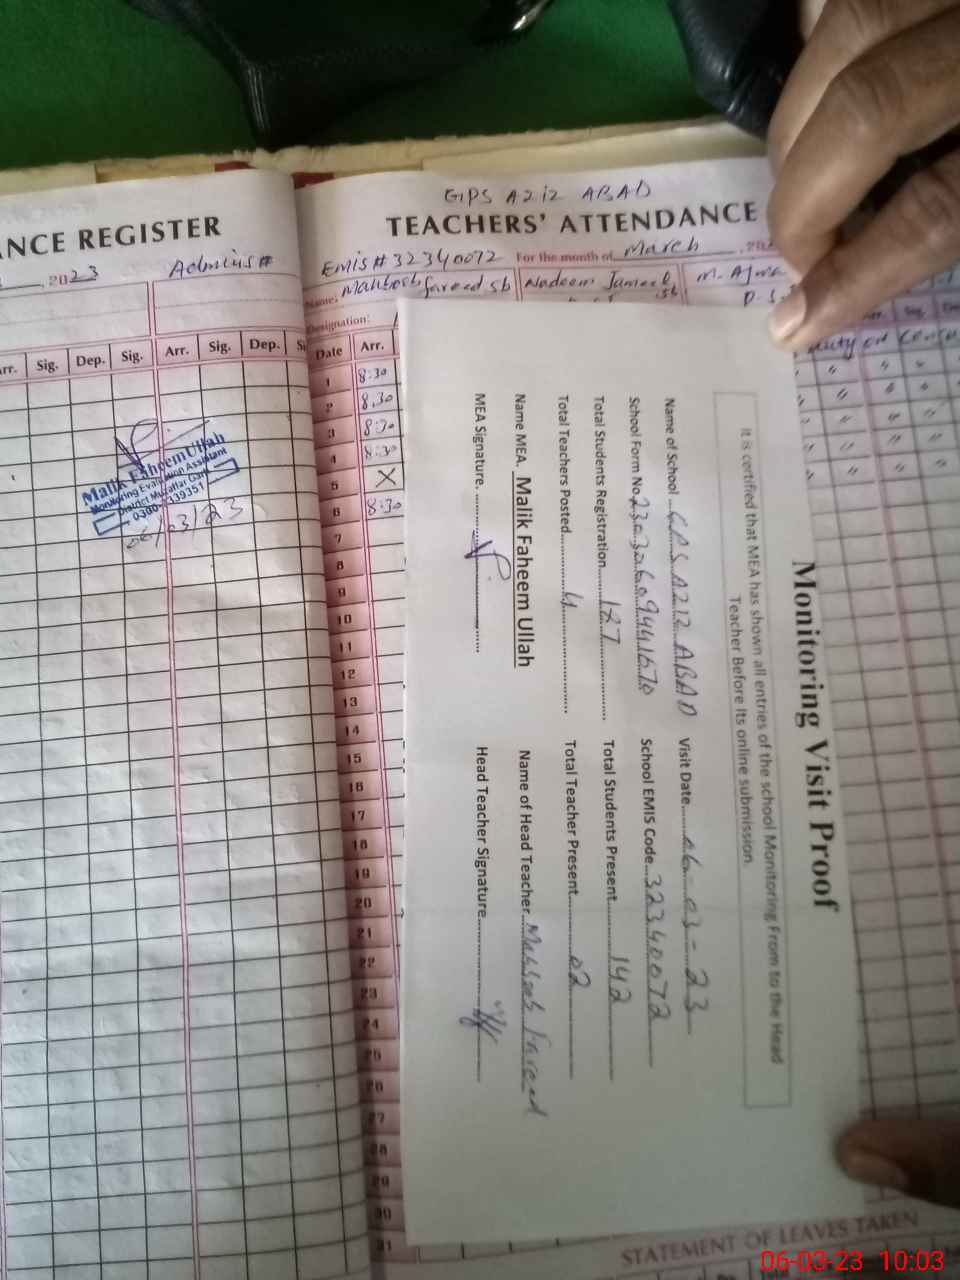 NCE REGISTER
2023
Admins #
Arr. Sig. Dep. Sig. Arr. Sig. Dep.
Malik FaheemUllah
Monitoring Evaluation Assistant
District Muzaffar Garh
06/03/23
GPS AZIZ ABAD
TEACHERS' ATTENDANCE
Emis # 32340072 For the month of March
Name: Mahboob fareed sb Nadeem Jameel sb M. Ajma
Designation:
Date Arr.
1 8:30
2 8:30
3 8:30
4 8:30
5 X
6 8:30
7
8
9
10
11
12
13
14
15
16
17
18
19
20
21
22
23
24
25
26
27
28
29
30
31
duty on
Monitoring Visit Proof
It is certified that MEA has shown all entries of the school Monitoring From to the Head
Teacher Before Its online submission
Name of School GPS AZIZ ABAD Visit Date 06-03-23
School Form No. School EMIS Code 32340072
Total Students Registration 187 Total Students Present 142
Total Teachers Posted 4 Total Teacher Present 02
Name MEA. Malik Faheem Ullah Name of Head Teacher Mahboob Fareed
MEA Signature. Head Teacher Signature
STATEMENT OF LEAVES TAKEN
06-03-23 10:03